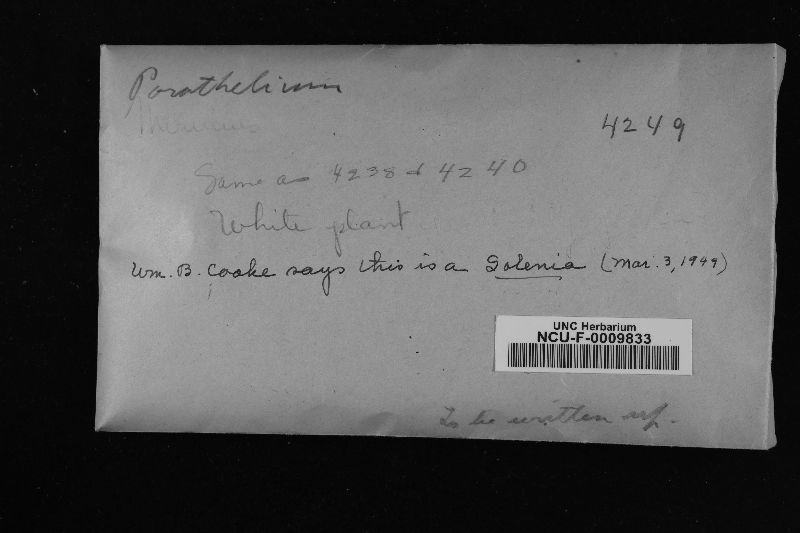 Porothelium
4249
Same as 4238 & 4240
White plant
Wm. B. Cooke says this is a Solenia (Mar. 3, 1949)
UNC Herbarium
NCU-F-0009833
To be written up.